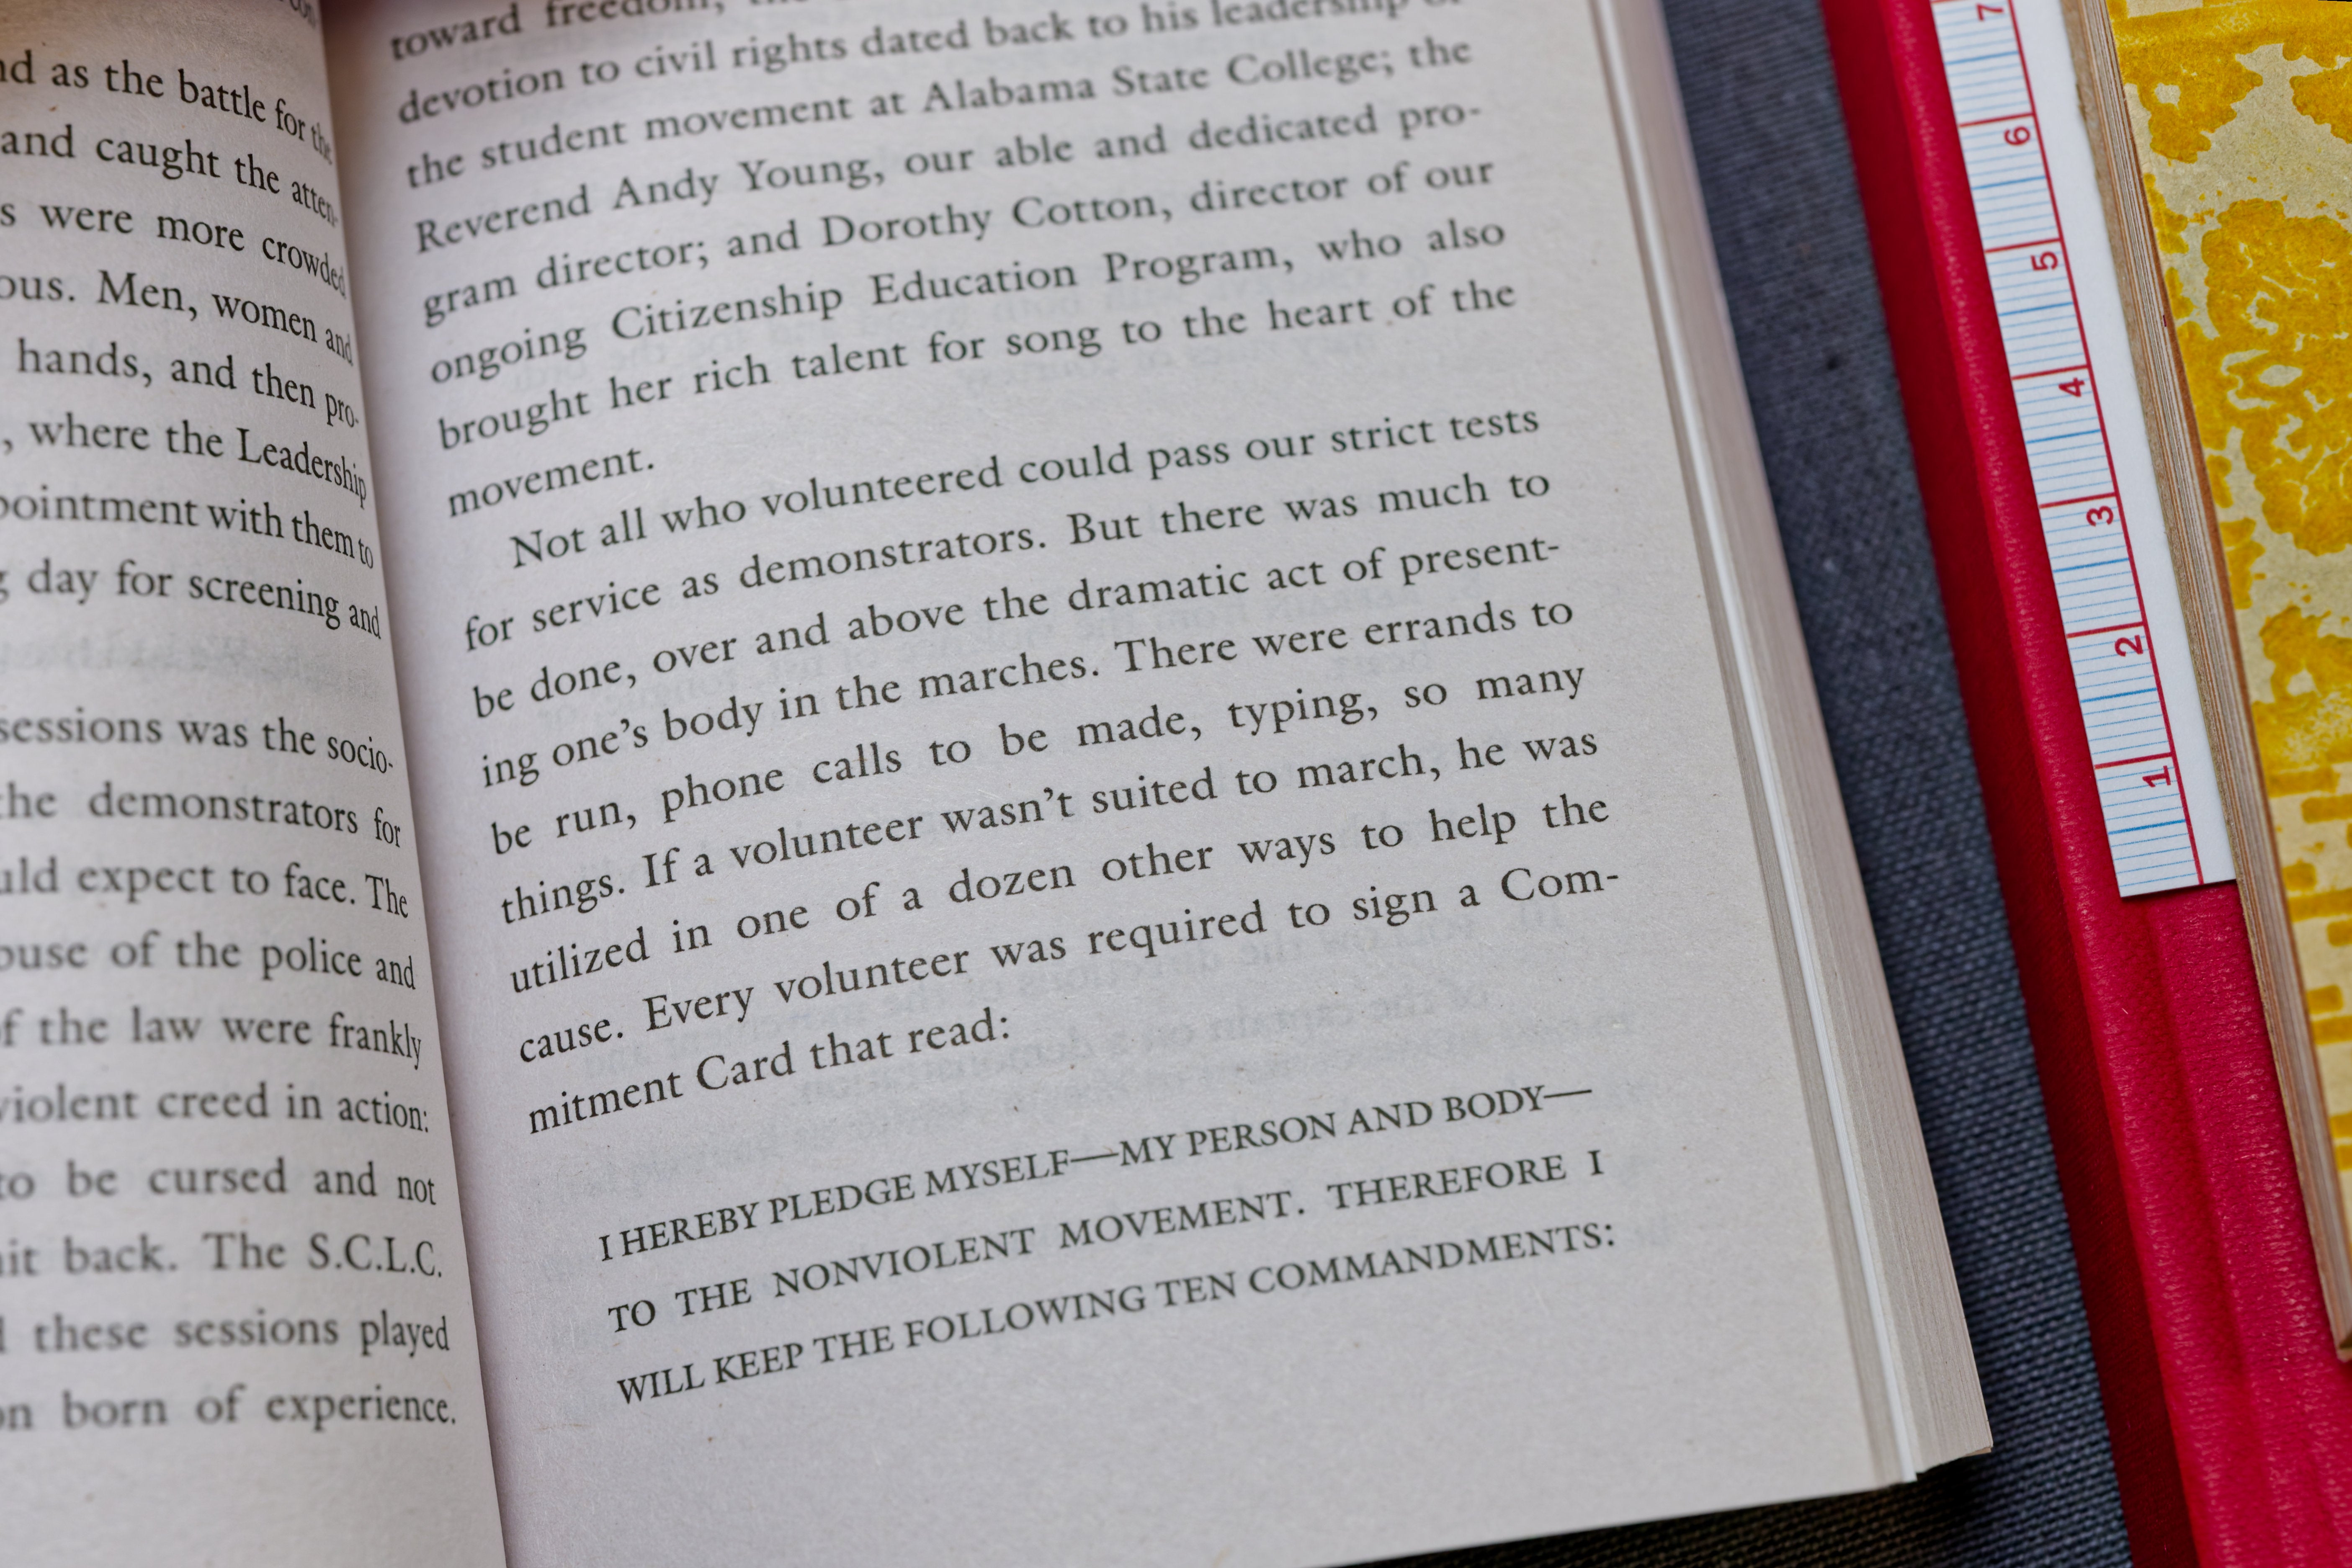 nd as the battle for the
and caught the atten-
s were more crowded
ous. Men, women and
hands, and then pro-
, where the Leadership
pointment with them to
g day for screening and
sessions was the socio-
the demonstrators for
uld expect to face. The
buse of the police and
of the law were frankly
violent creed in action:
to be cursed and not
hit back. The S.C.L.C.
d these sessions played
on born of experience.
toward freedom,
devotion to civil rights dated back to his leadership of
the student movement at Alabama State College; the
Reverend Andy Young, our able and dedicated pro-
gram director; and Dorothy Cotton, director of our
ongoing Citizenship Education Program, who also
brought her rich talent for song to the heart of the
movement.
Not all who volunteered could pass our strict tests
for service as demonstrators. But there was much to
be done, over and above the dramatic act of present-
ing one's body in the marches. There were errands to
be run, phone calls to be made, typing, so many
things. If a volunteer wasn't suited to march, he was
utilized in one of a dozen other ways to help the
cause. Every volunteer was required to sign a Com-
mitment Card that read:
I HEREBY PLEDGE MYSELF—MY PERSON AND BODY—
TO THE NONVIOLENT MOVEMENT. THEREFORE I
WILL KEEP THE FOLLOWING TEN COMMANDMENTS:
7
6
5
4
3
2
1